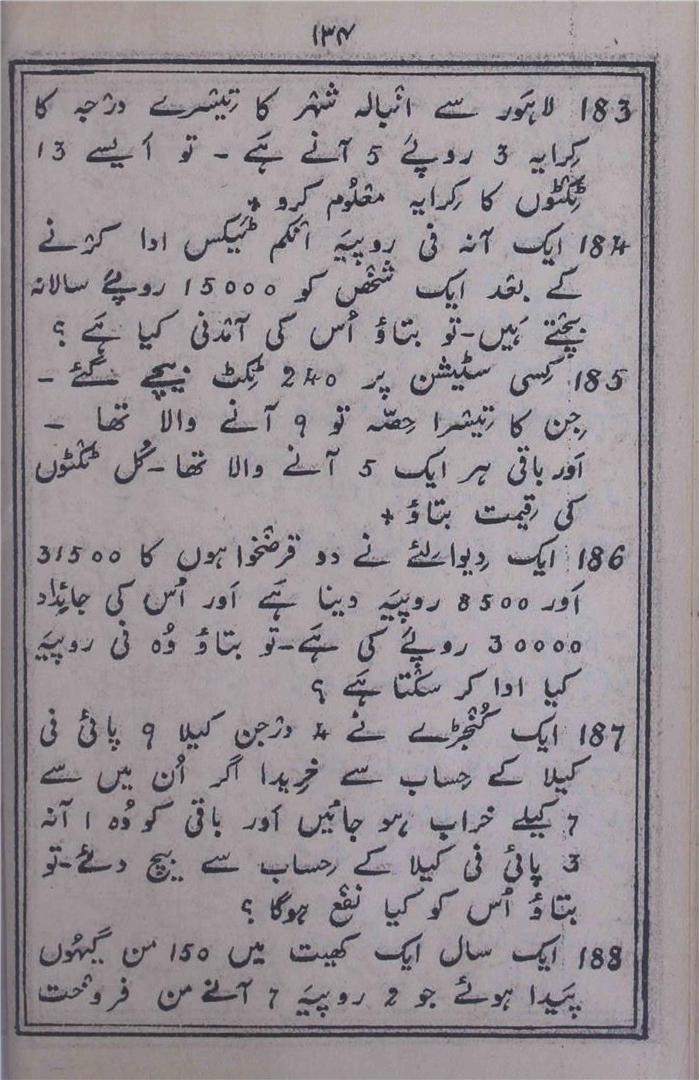 ۱۳۴
183 لاہور سے انبالہ شہر کا تیسرے درجہ کا
کرایہ 3 روپے 5 آنے ہے - تو ایسے 13
ٹکٹوں کا کرایہ معلوم کرو +
184 ایک آنہ فی روپیہ انکم ٹیکس ادا کرنے
کے بعد ایک شخص کو 15000 روپے سالانہ
بچتے ہیں-تو بتاؤ اُس کی آمدنی کیا ہے ؟
185 کسی سٹیشن پر 240 ٹکٹ بیچے گئے -
جن کا تیسرا حصّہ تو 9 آنے والا تھا -
اور باقی ہر ایک 5 آنے والا تھا-کُل ٹکٹوں
کی قیمت بتاؤ +
186 ایک دیوالئے نے دو قرضخواہوں کا 31500
اور 8500 روپیہ دینا ہے اور اُس کی جائداد
30000 روپے کی ہے-تو بتاؤ وُہ فی روپیہ
کیا ادا کر سکتا ہے ؟
187 ایک کُنجڑے نے 4 درجن کیلا 9 پائی فی
کیلا کے حساب سے خریدا اگر اُن میں سے
7 کیلے خراب ہو جائیں اور باقی کو وُہ 1 آنہ
3 پائی فی کیلا کے حساب سے بیچ دئے-تو
بتاؤ اُس کو کیا نفع ہوگا ؟
188 ایک سال ایک کھیت میں 150 من گیہُوں
پیدا ہوئے جو 2 روپیہ 7 آنے من فروخت